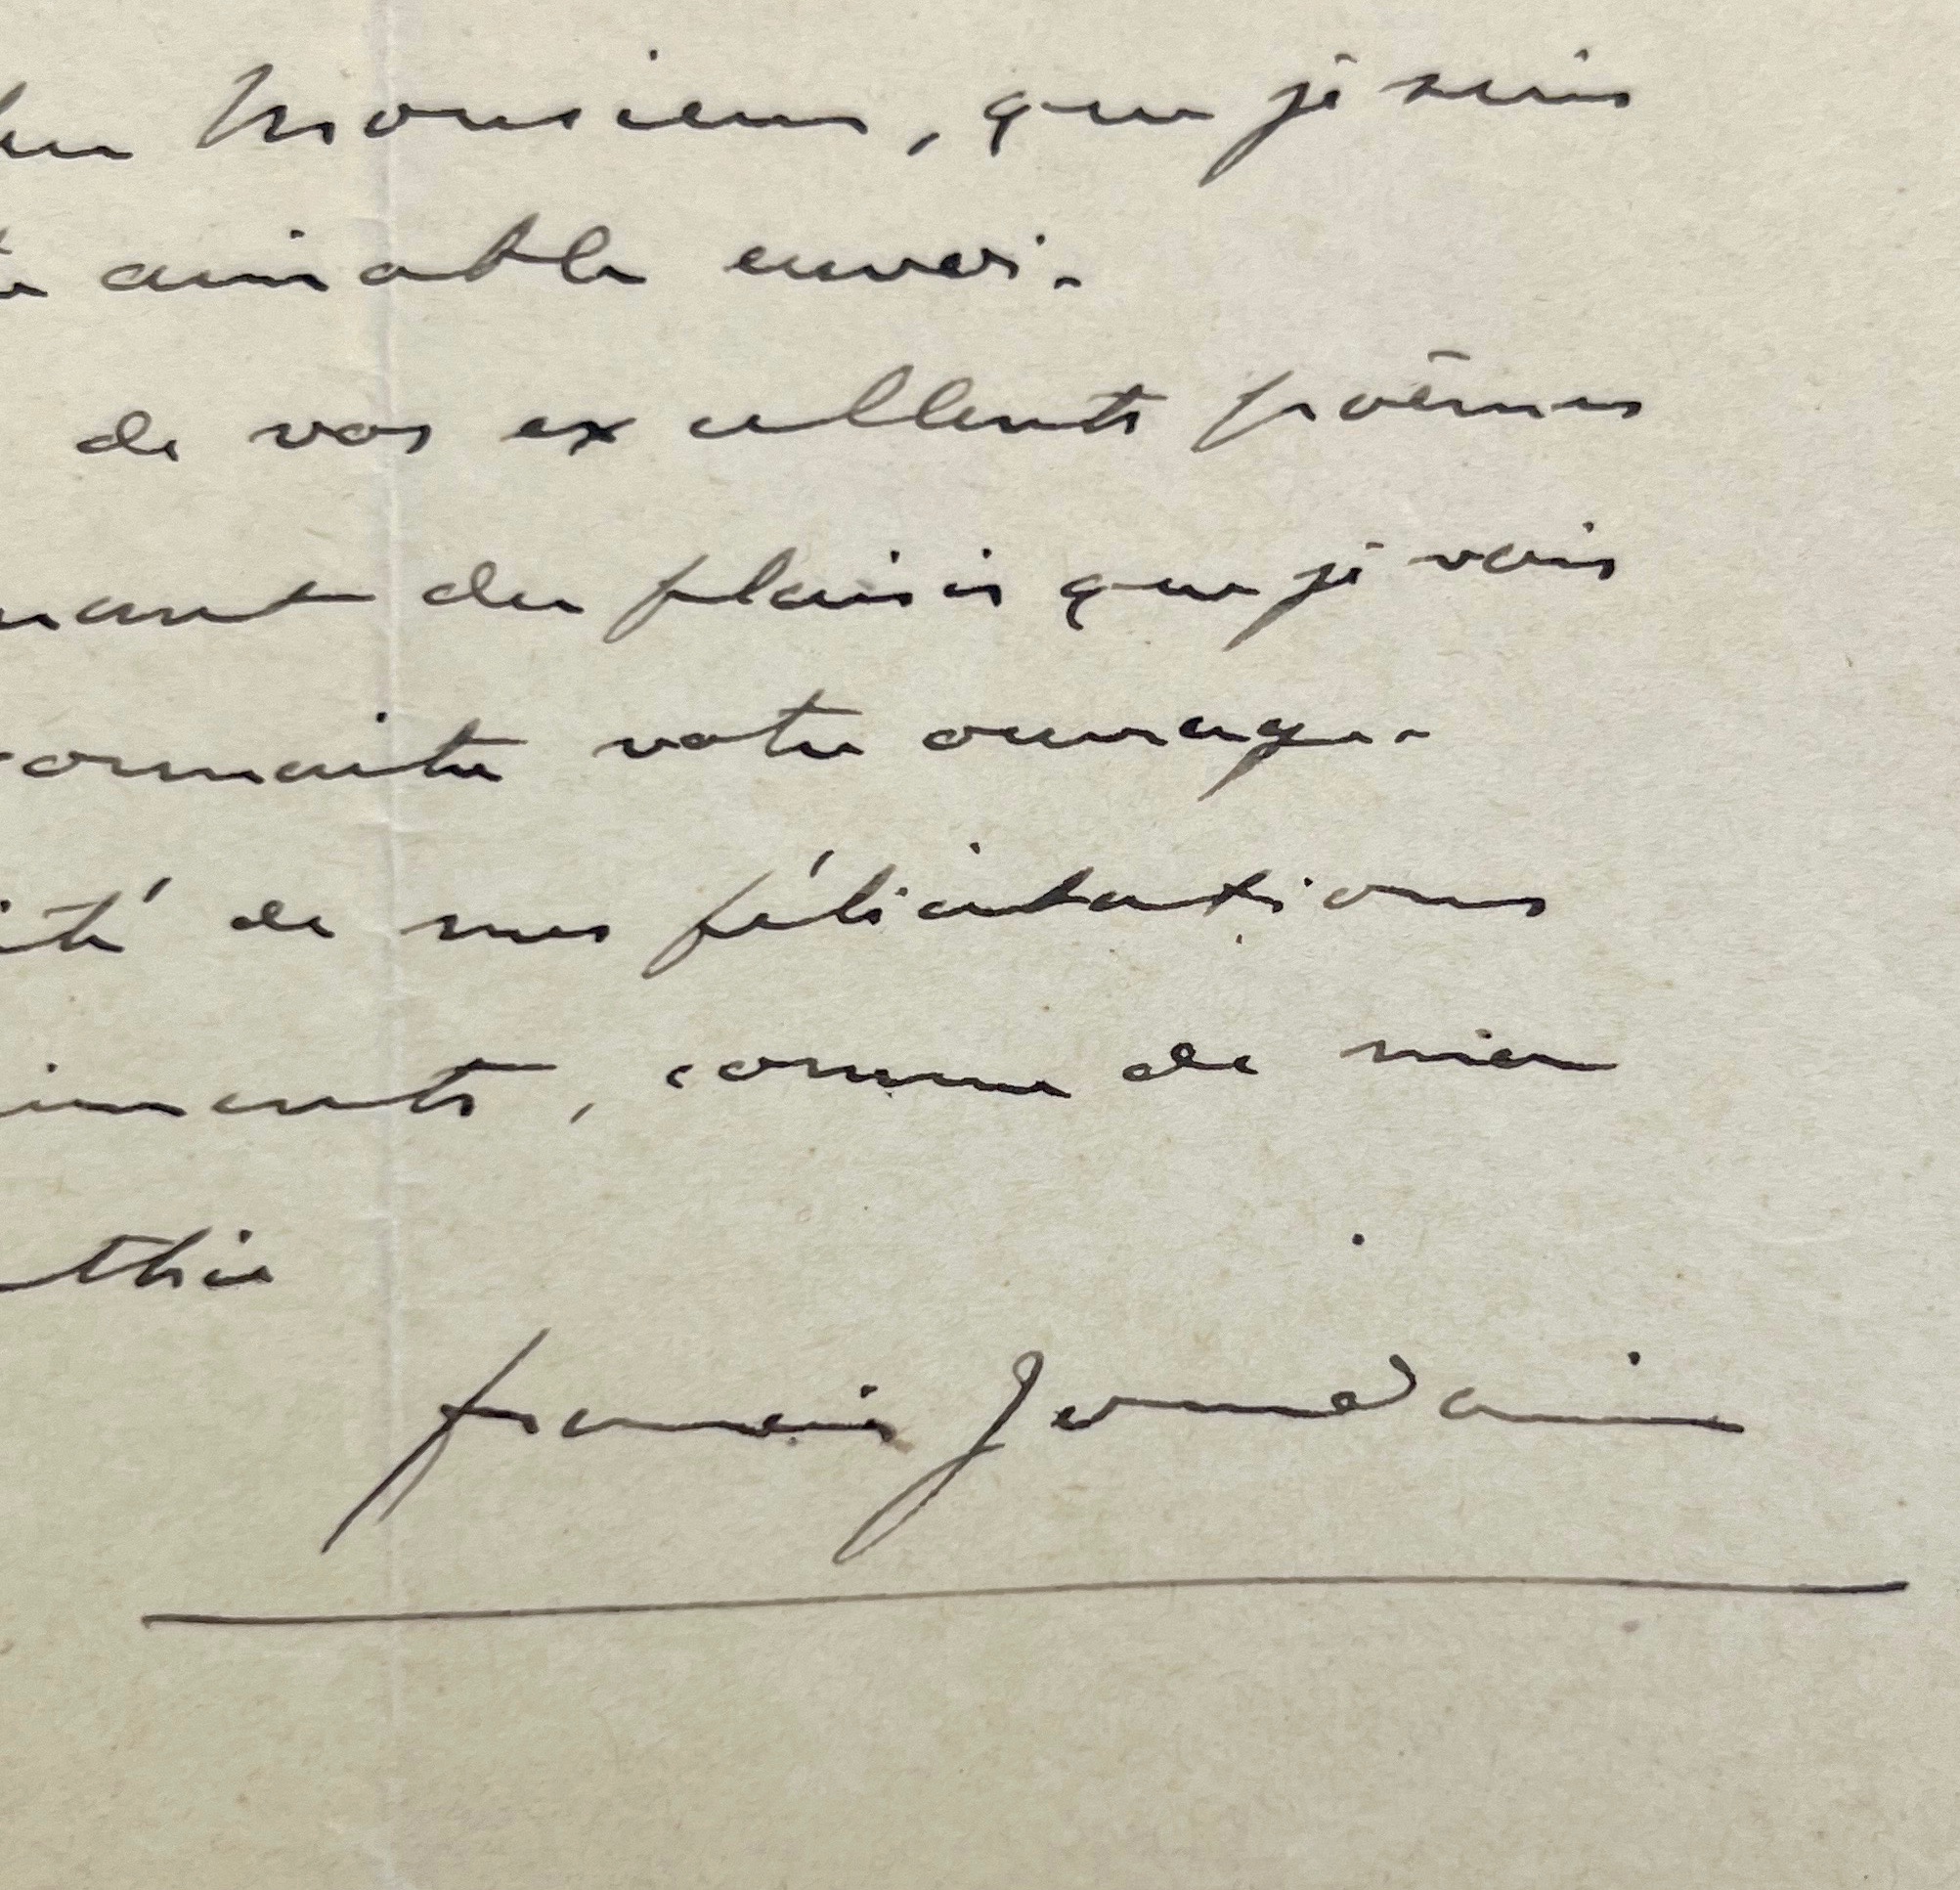 Monsieur, que je suis
aimable envoi.
de vos excellents poëmes
nant du plaisir que je vais
connaître votre ouvrage.
ité de mes félicitations
iments, comme de mien
thie
francis Jourdain